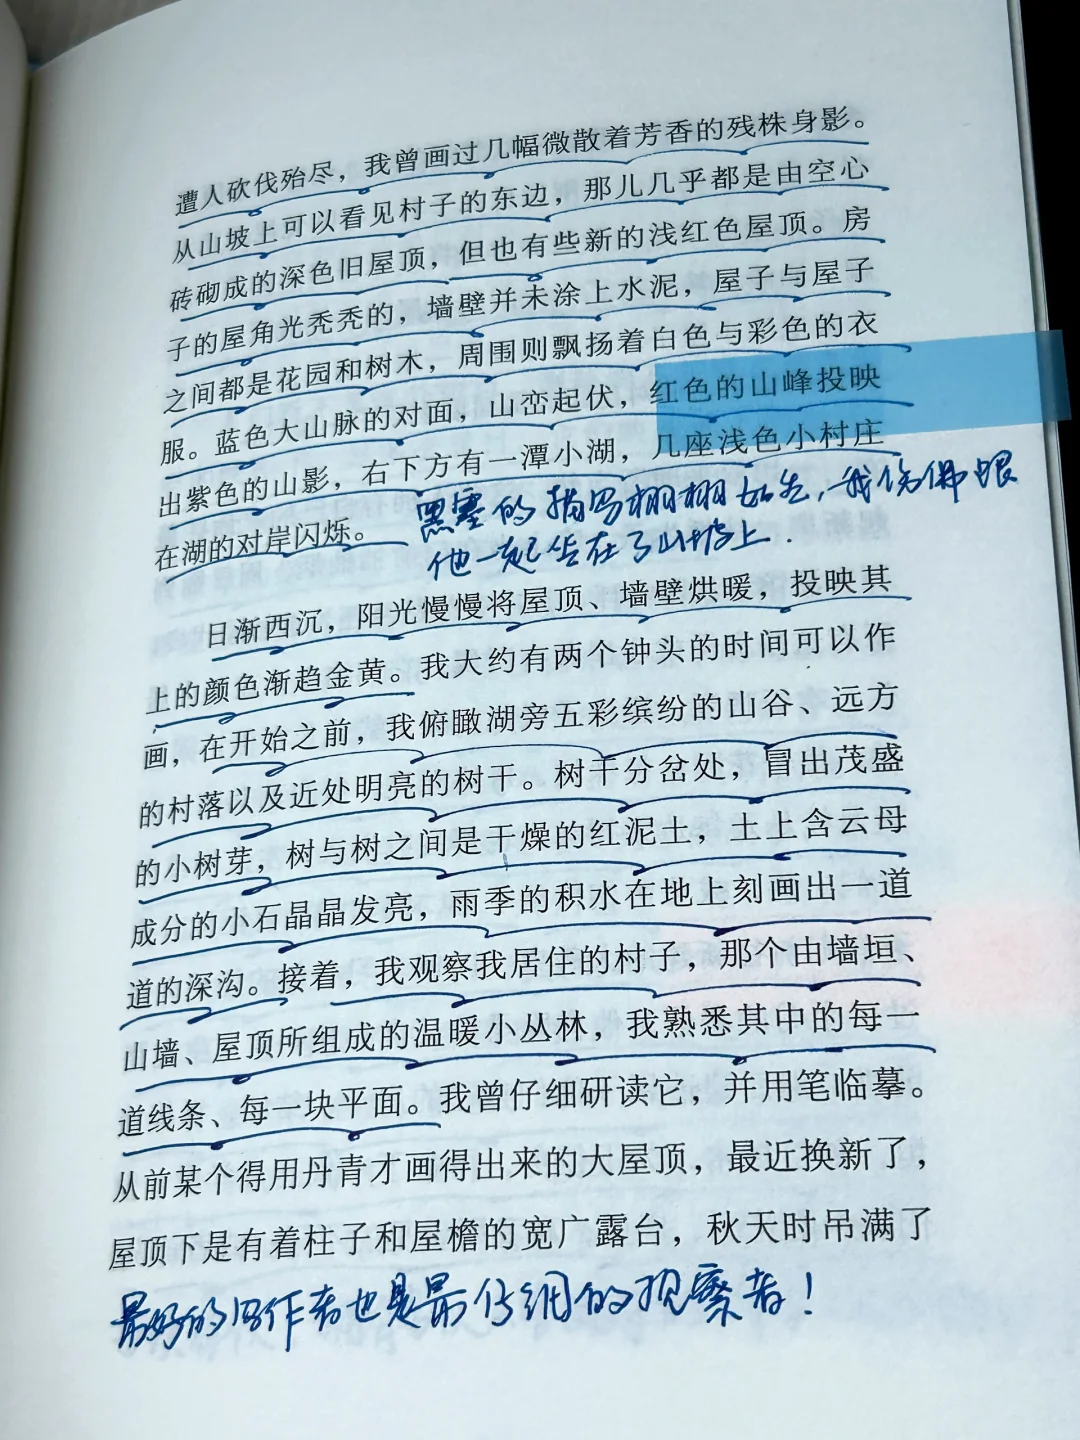 遭人砍伐殆尽，我曾画过几幅微散着芳香的残株身影。
从山坡上可以看见村子的东边，那儿几乎都是由空心
砖砌成的深色旧屋顶，但也有些新的浅红色屋顶。房
子的屋角光秃秃的，墙壁并未涂上水泥，屋子与屋子
之间都是花园和树木，周围则飘扬着白色与彩色的衣
服。蓝色大山脉的对面，山峦起伏，红色的山峰投映
出紫色的山影，右下方有一潭小湖，几座浅色小村庄
在湖的对岸闪烁。
黑塞的描写栩栩如生，我仿佛跟
他一起坐在了山坡上.
日渐西沉，阳光慢慢将屋顶、墙壁烘暖，投映其
上的颜色渐趋金黄。我大约有两个钟头的时间可以作
画，在开始之前，我俯瞰湖旁五彩缤纷的山谷、远方
的村落以及近处明亮的树干。树干分岔处，冒出茂盛
的小树芽，树与树之间是干燥的红泥土，土上含云母
成分的小石晶晶发亮，雨季的积水在地上刻画出一道
道的深沟。接着，我观察我居住的村子，那个由墙垣、
山墙、屋顶所组成的温暖小丛林，我熟悉其中的每一
道线条、每一块平面。我曾仔细研读它，并用笔临摹。
从前某个得用丹青才画得出来的大屋顶，最近换新了，
屋顶下是有着柱子和屋檐的宽广露台，秋天时吊满了
最好的写作者也是最仔细的观察者！